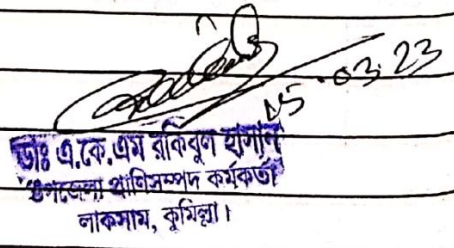 15.03.23
ডাঃ এ.কে.এম রাকিবুল হাসান
উপজেলা প্রাণিসম্পদ কর্মকর্তা
লাকসাম, কুমিল্লা।